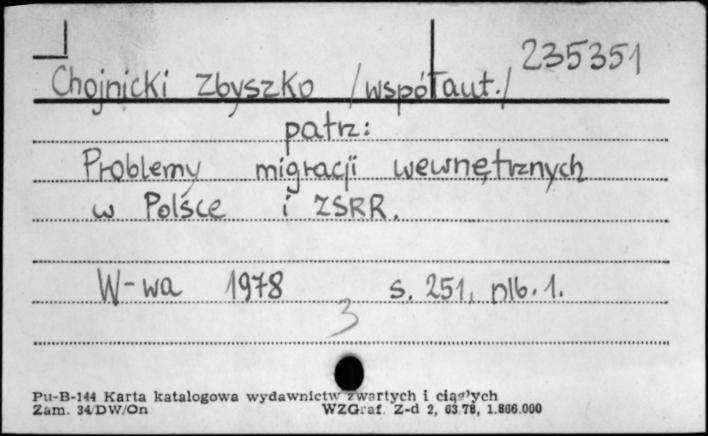 235351
Chojnicki Zbyszko /współaut./
patrz:
Problemy migracji wewnętrznych
w Polsce i ZSRR.
W-wa 1978 s. 251, nlb. 1.
3
Pu-B-144 Karta katalogowa wydawnictw zwartych i ciągłych
Zam. 34/DW/On WZGraf. Z-d 2, 63.78, 1.866.000